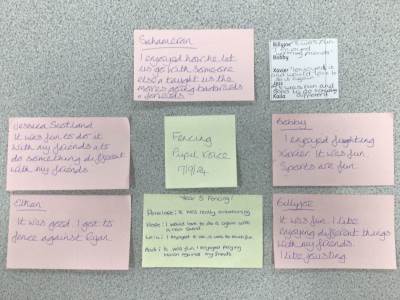 I enjoyed how he let
us go with someone
else & taught us the
moves going backwards
& forwards
Billyjoe It was fun
I enjoyed
Bobby
Xavier
Kaila different
Jessica Scotland
It was fun to do it
with my friends & to
do something different
with my friends
Fencing
Pupil Voice
17/9/24
Bobby
I enjoyed fighting
Xavier. It was fun
Sports are fun
Ethan
It was good I got to
fence against Ryan
Year 5 Fencing!
it was really entertaining
I would love to do it again with
a new sword
I enjoyed it as it was so much fun
it was fun I enjoyed playing
against my friends
Billyjoe
It was fun. I like
enjoying different things
with my friends.
I like jousting